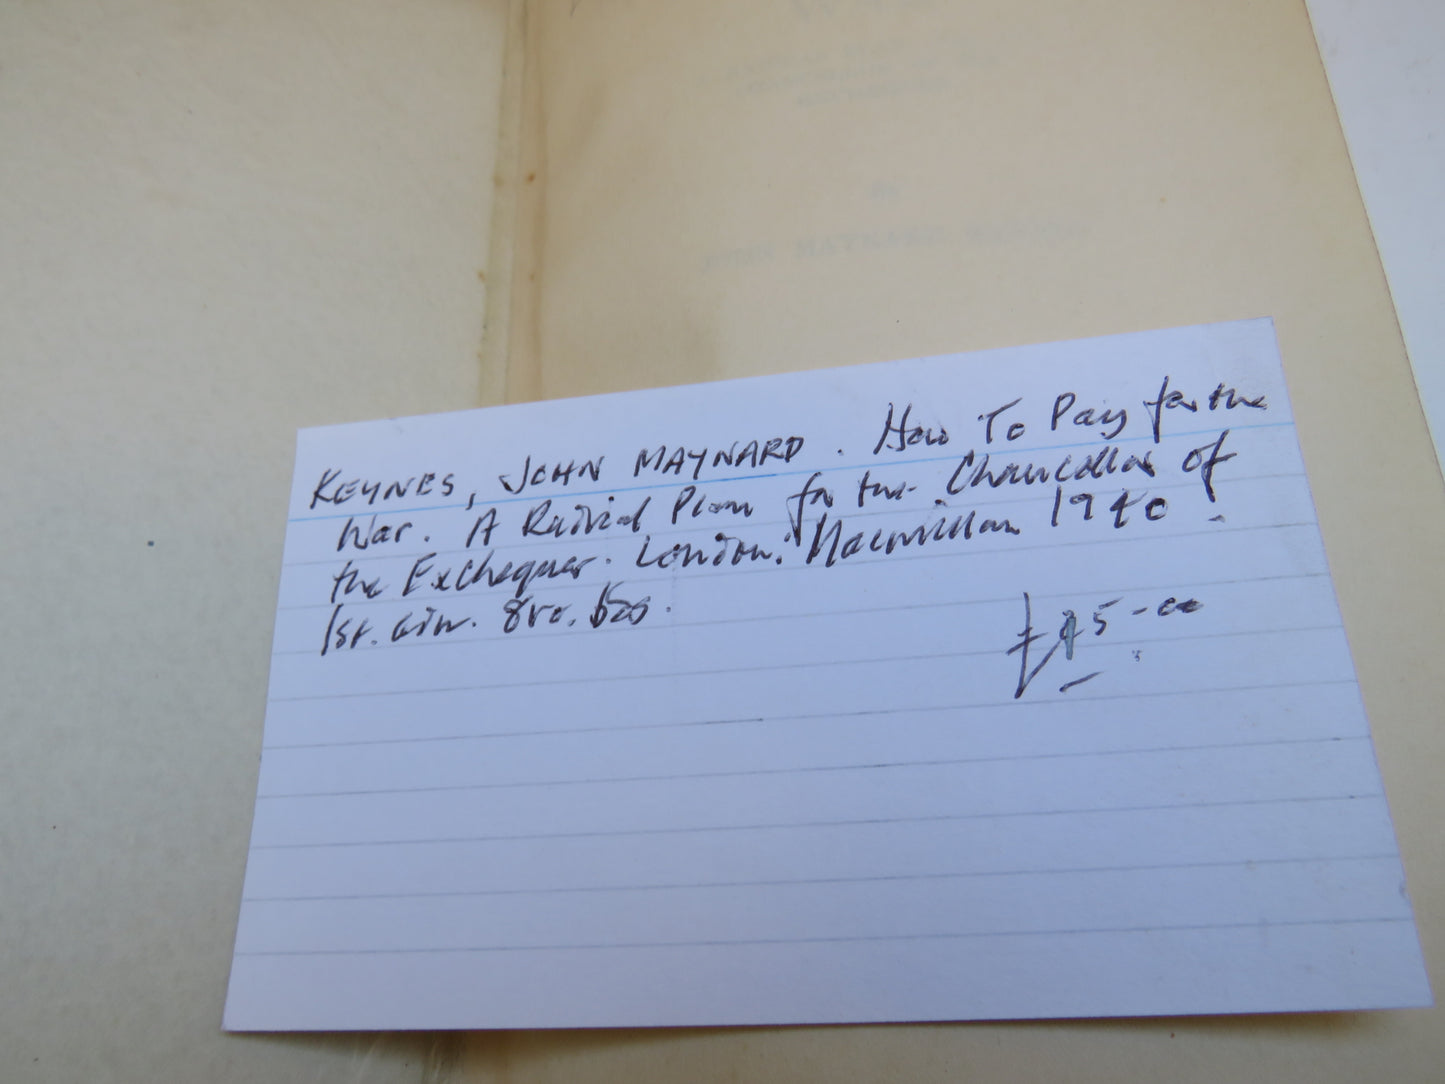 KEYNES, JOHN MAYNARD. How To Pay for the
War. A Radical Plan for the Chancellor of
the Exchequer. London. Macmillan 1940.
1st. edn. 8vo. bds.
£ 5-00